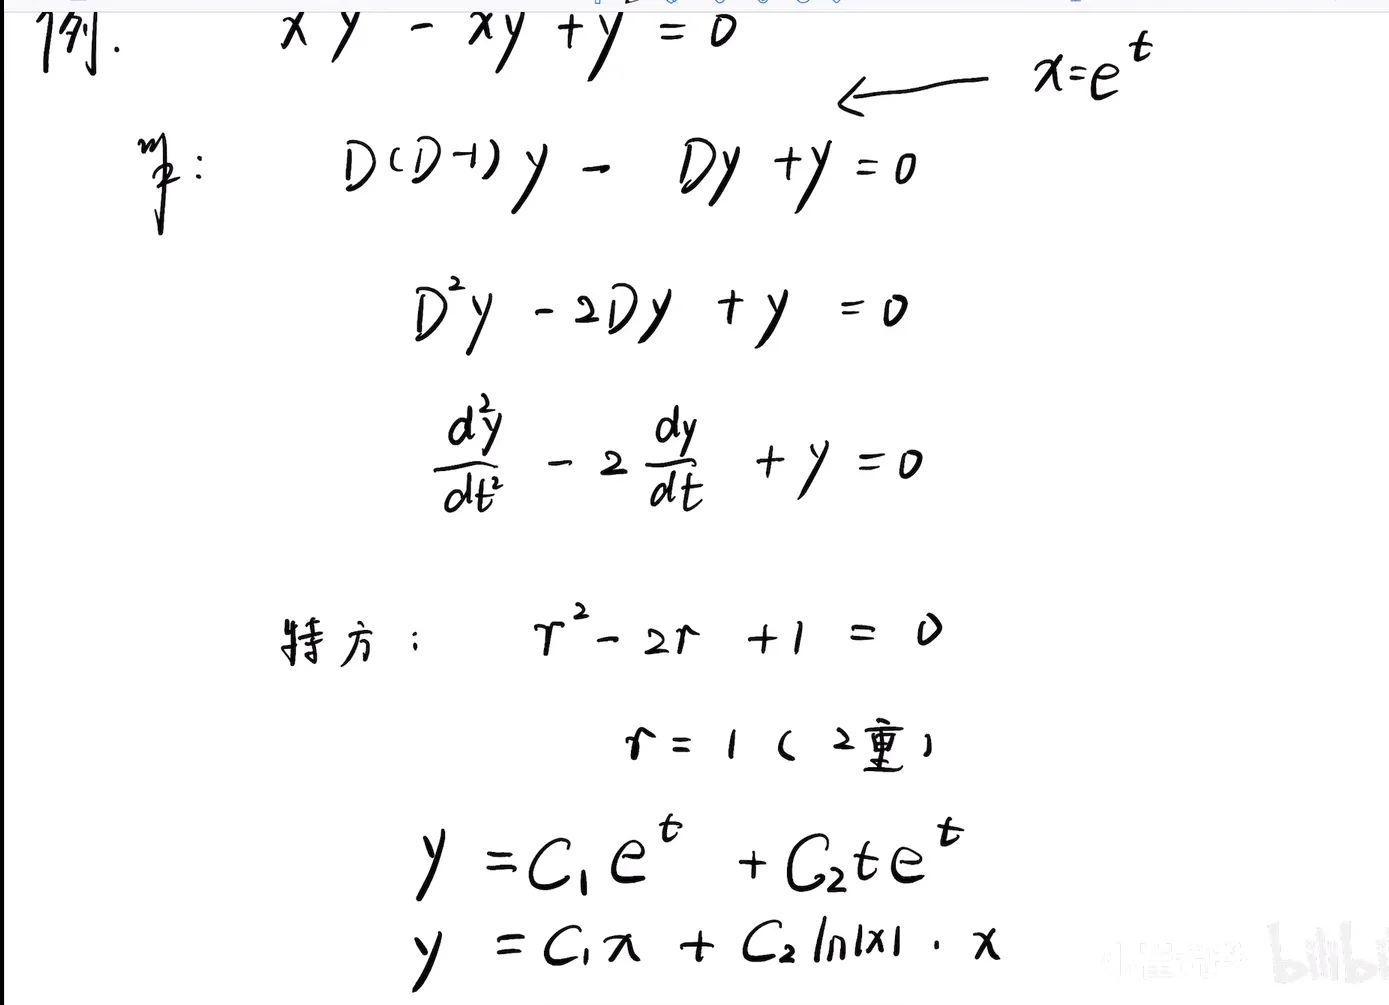 例. xy - xy + y = 0
x=e^t
解: D(D-1)y - Dy + y = 0
D²y - 2Dy + y = 0
d²y/dt² - 2 dy/dt + y = 0
特方: r² - 2r + 1 = 0
r = 1 (2重)
y = C₁e^t + C₂te^t
y = C₁x + C₂ln|x|·x
bilibili